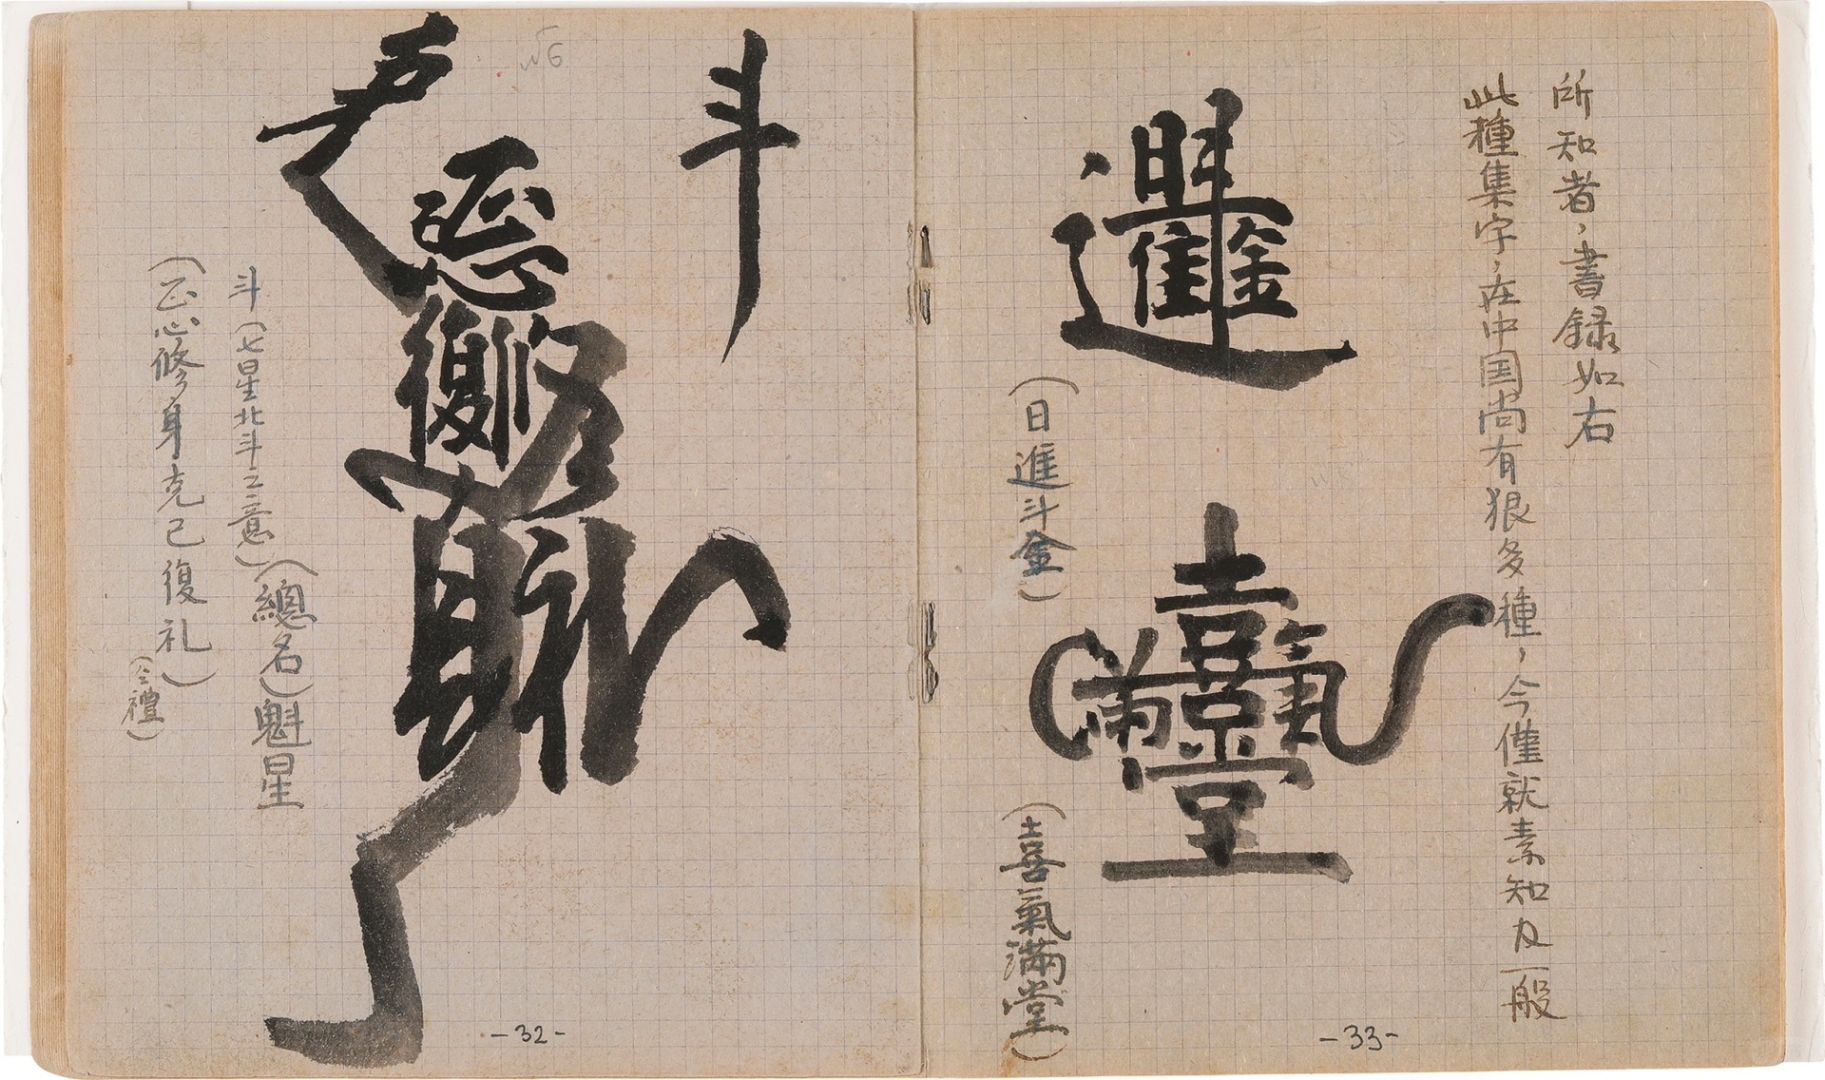 (正心修身克己復礼)
(仝禮)
斗(七星北斗之意)
(總名)魁星
斗
-32-
(日進斗金)
(喜氣滿堂)
此種集字，在中国尚有狠多種，今僅就素知及一般
所知者，書録如右
-33-